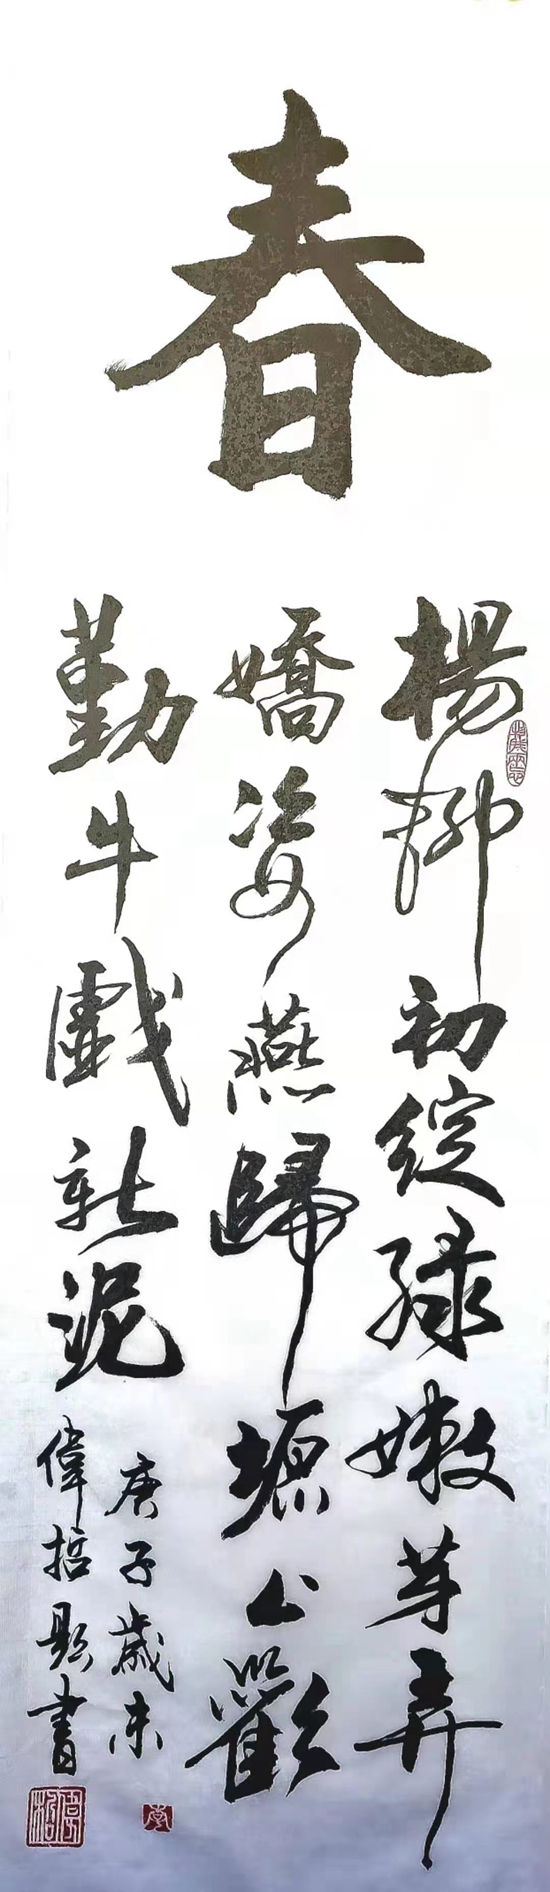 春
楊柳初綻綠嫩芽弄
嬌姿燕歸塬上歡
勤牛戲新泥
庚子歲末
偉哲題書